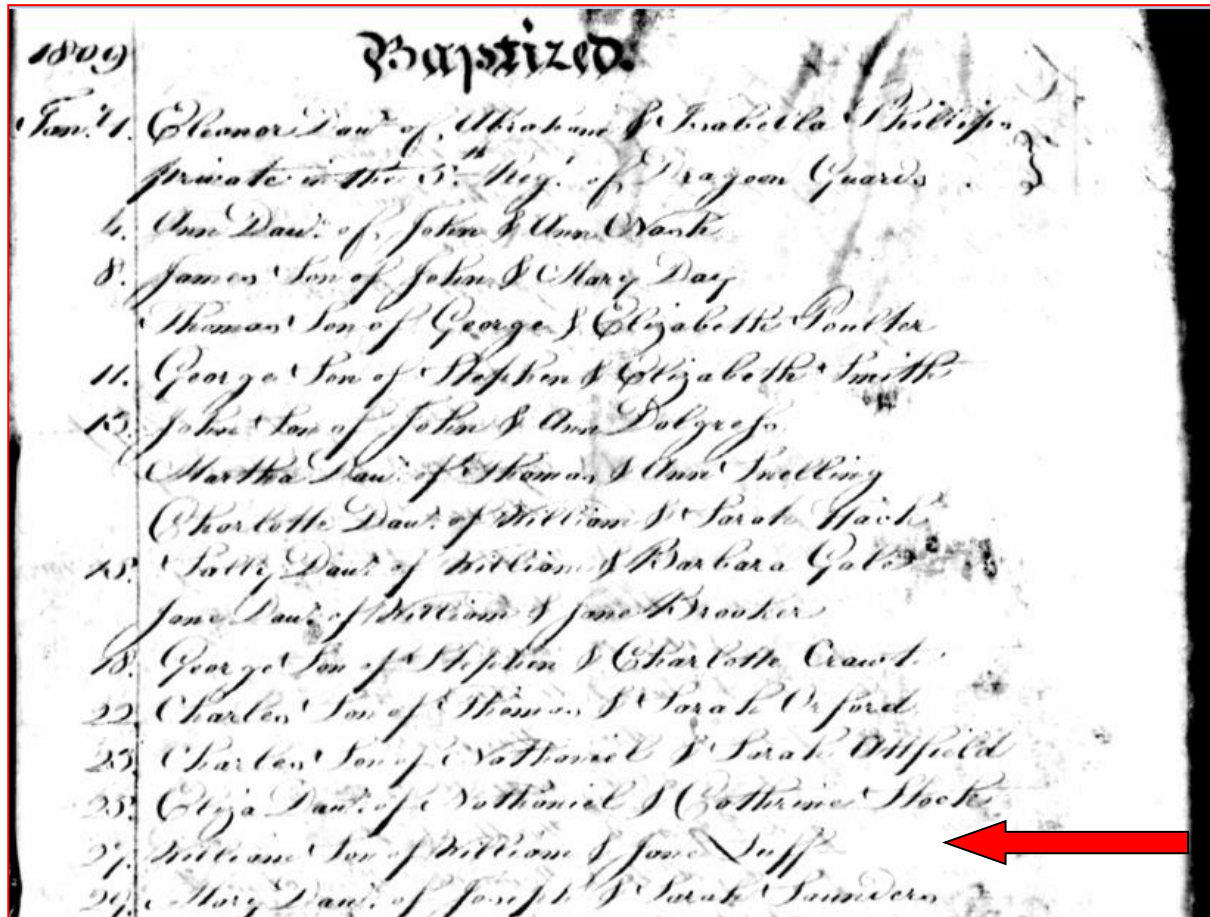 1809 Baptized.
Jan.y 1. Eleanor Daur. of Abraham & Isabella Phillips
private in the 5th Regt. of Dragoon Guards
4. Ann Daur. of John & Ann Nash
8. James Son of John & Mary Day
Thomas Son of George & Elizabeth Poulter
11. George Son of Stephen & Elizabeth Smith
15. John Son of John & Ann Dobgress
Martha Daur. of Thomas & Ann Snelling
Charlotte Daur. of William & Sarah
18. Sally Daur. of William & Barbara Gale
Jane Daur. of William & Jane Brooker
18. George Son of Stephen & Charlotte Crawt
22. Charles Son of Thomas & Sarah Orford
23. Charles Son of Nathaniel & Sarah Attfield
25. Eliza Daur. of Nathaniel & Cathrine Stock
27. William Son of William & Jane Suff
29. Mary Daur. of Joseph & Sarah Saunders